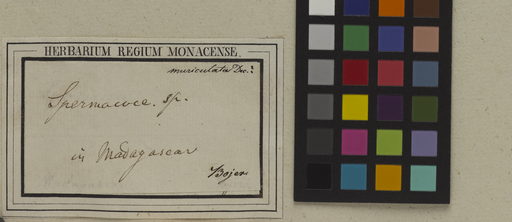 HERBARIUM REGIUM MONACENSE.
muriculata Dec.?
Spermacoce. sp.
in Madagascar
Bojer